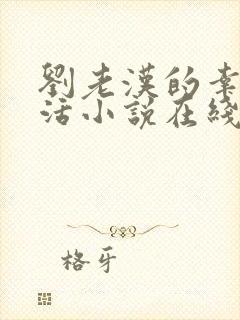 劉老漢的幸
活小說在綫
格牙